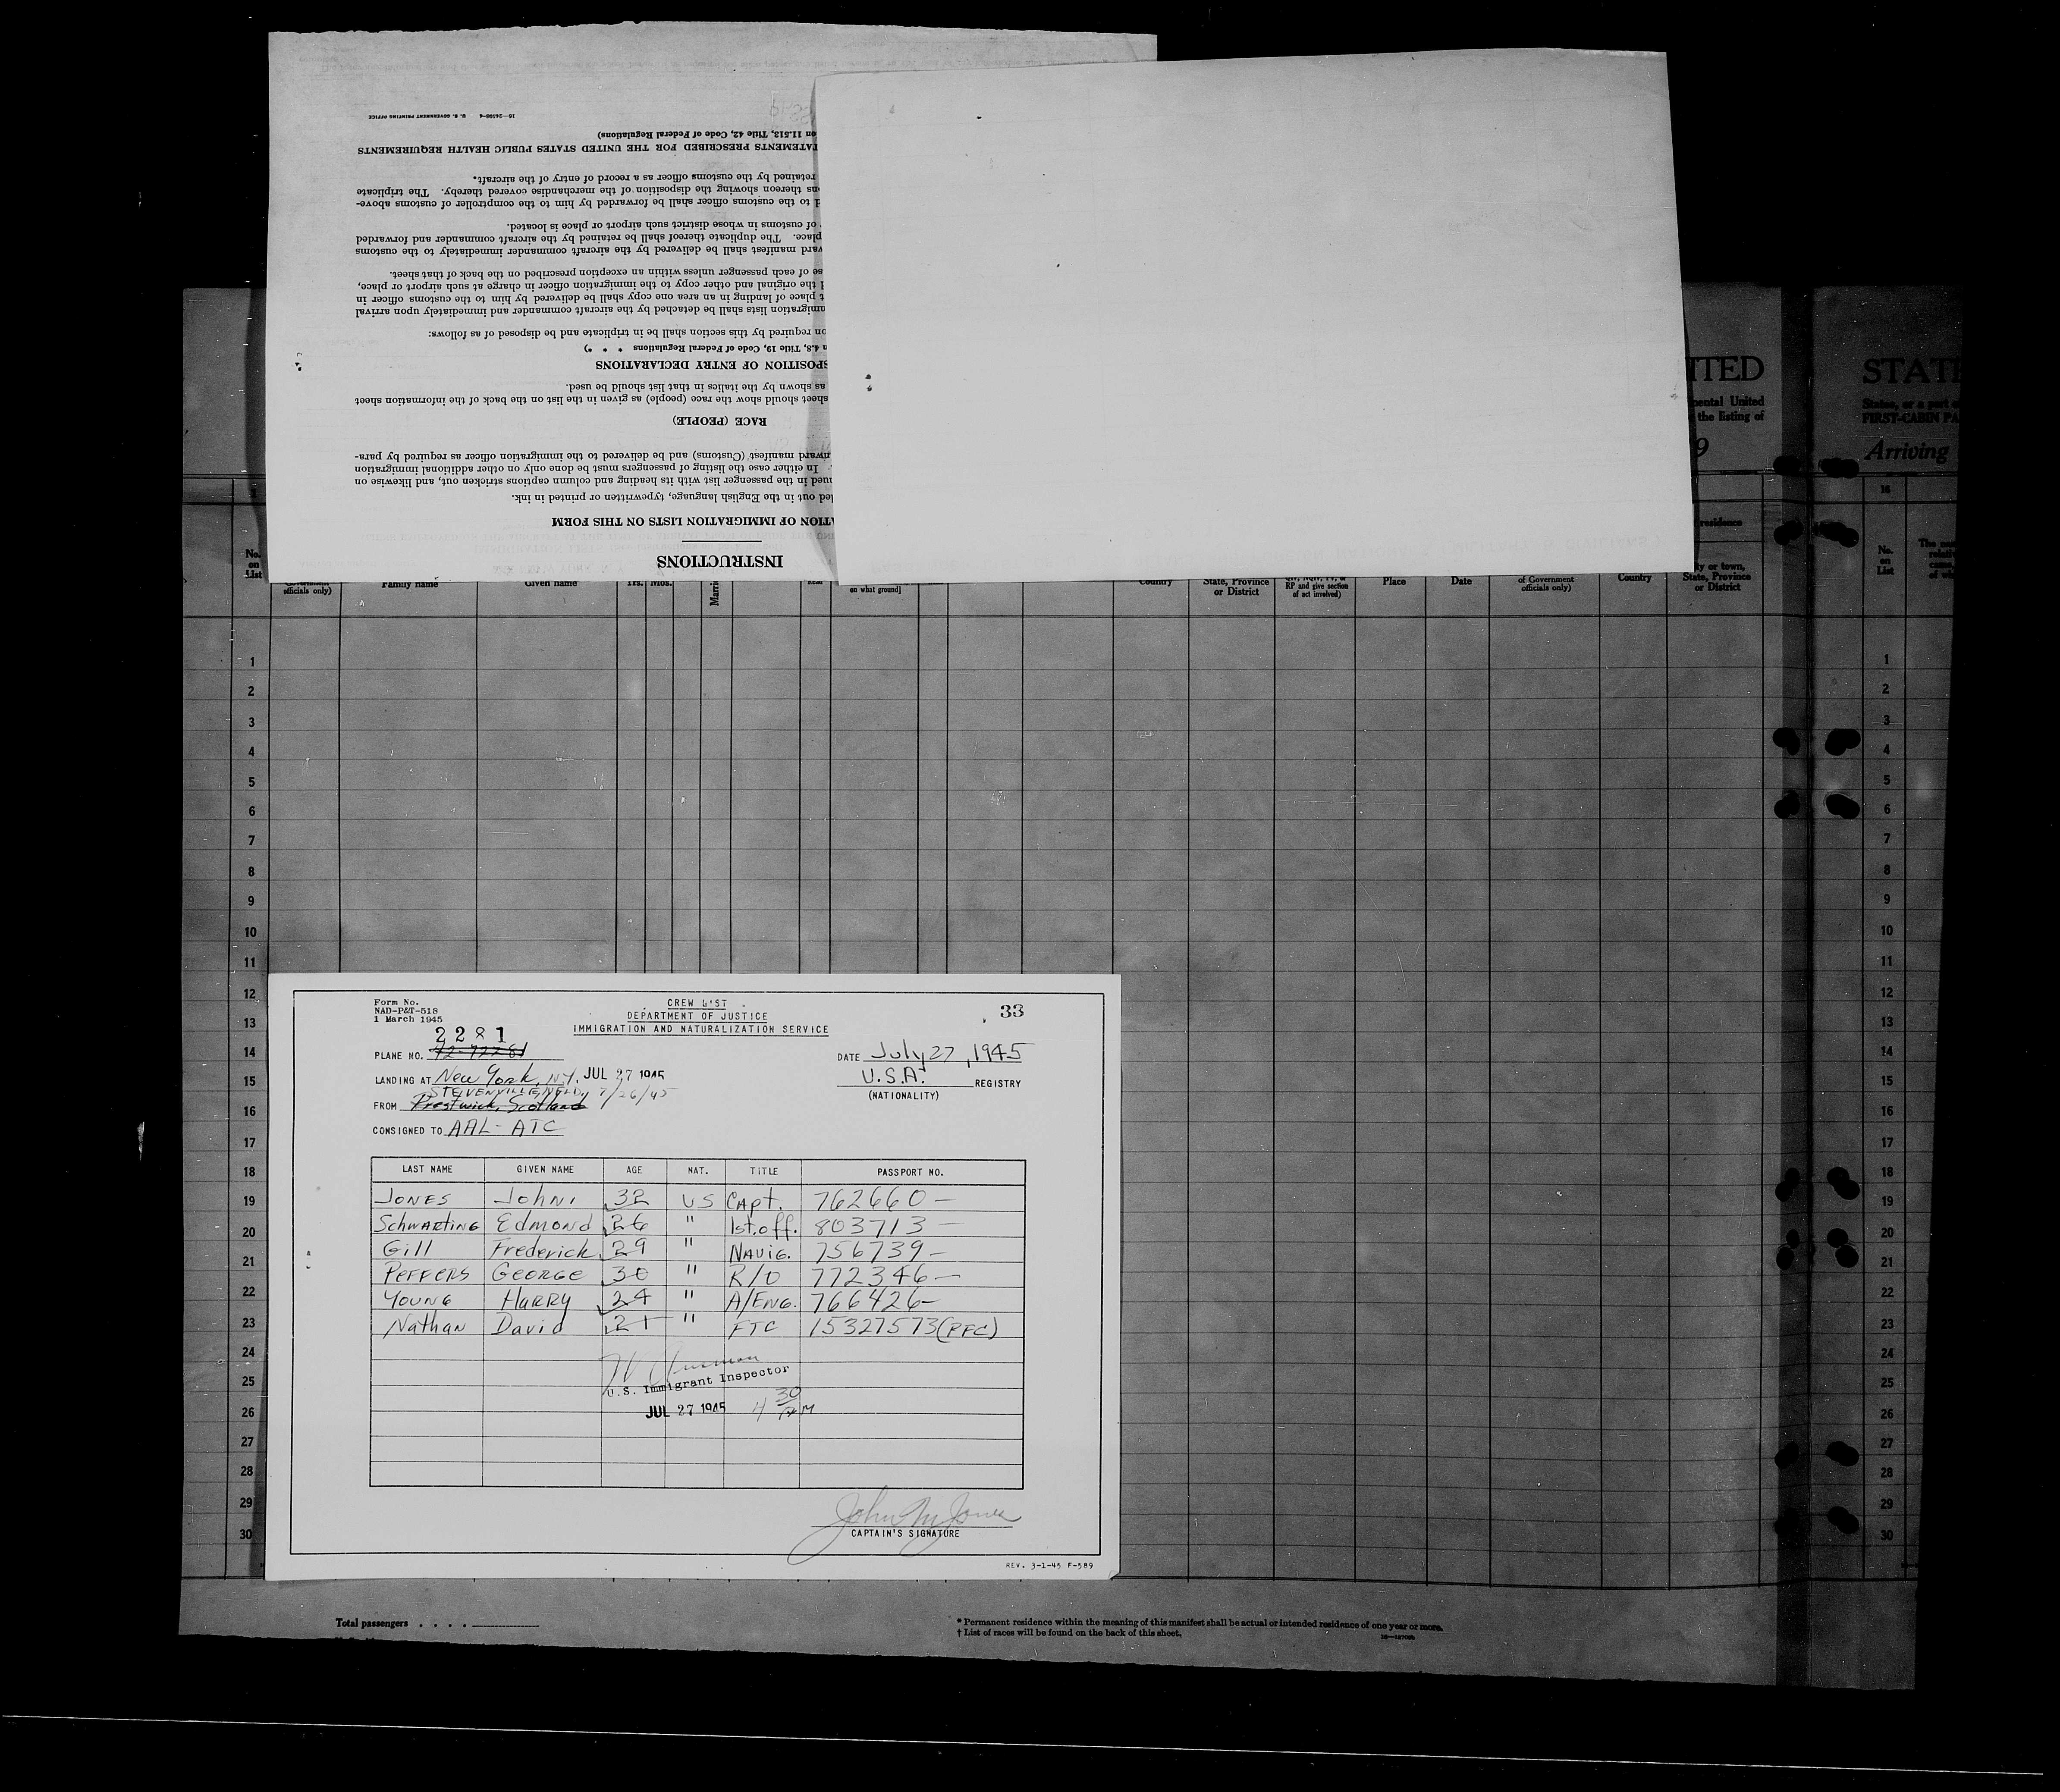 16—26598-4 U. S. GOVERNMENT PRINTING OFFICE
on 11.513, Title 42, Code of Federal Regulations)
STATEMENTS PRESCRIBED FOR THE UNITED STATES PUBLIC HEALTH REQUIREMENTS
retained by the customs officer as a record of entry of the aircraft.
thereon showing the disposition of the merchandise covered thereby. The triplicate
to the customs officer shall be forwarded by him to the comptroller of customs above-
of customs in whose district such airport or place is located.
place. The duplicate thereof shall be retained by the aircraft commander and forwarded
manifest shall be delivered by the aircraft commander immediately to the customs
of each passenger unless within an exception prescribed on the back of that sheet.
the original and other copy to the immigration officer in charge at such airport or place,
place of landing in an area one copy shall be delivered by him to the customs officer in
immigration lists shall be detached by the aircraft commander and immediately upon arrival
required by this section shall be in triplicate and be disposed of as follows:
4.8, Title 19, Code of Federal Regulations * * *)
DISPOSITION OF ENTRY DECLARATIONS
as shown by the italics in that list should be used.
sheet should show the race (people) as given in the list on the back of the information sheet
RACE (PEOPLE)
manifest (Customs) and be delivered to the immigration officer as required by para-
In either case the listing of passengers must be done only on other additional immigration
in the passenger list with its heading and column captions stricken out, and likewise on
out in the English language, typewritten or printed in ink.
OF IMMIGRATION LISTS ON THIS FORM
INSTRUCTIONS
ITED
mental United
the listing of
9
residence
STAT
States, or a part of
FIRST-CABIN PA
Arriving
16
No. on List
officials only)
Family name
Given name
Yrs. Mos.
on what ground]
Country
State, Province or District
RP and give section of act involved)
Place
Date
of Government officials only)
Country
City or town, State, Province or District
No. on List
1
2
3
4
5
6
7
8
9
10
11
12
13
14
15
16
17
18
19
20
21
22
23
24
25
26
27
28
29
30
1
2
3
4
5
6
7
8
9
10
11
12
13
14
15
16
17
18
19
20
21
22
23
24
25
26
27
28
29
30
Form No.
NAD-P&T-518
1 March 1945
CREW LIST
DEPARTMENT OF JUSTICE
IMMIGRATION AND NATURALIZATION SERVICE
33
2281
PLANE NO. 42-72281
DATE July 27, 1945
LANDING AT New York, N.Y. JUL 27 1945
U.S.A. REGISTRY
(NATIONALITY)
STEVENVILLE, NFLD, 7/26/45
FROM Prestwick, Scotland
CONSIGNED TO AAL-ATC
LAST NAME GIVEN NAME AGE NAT. TITLE PASSPORT NO.
JONES John 32 US CAPt. 762660—
SchwARting Edmond 26 " 1st.off. 803713—
Gill Frederick 29 " NAVIG. 756739—
PEFFERS GEORGE 30 " R/O 772346—
YOUNG HARRY 24 " A/ENG. 766426—
Nathan David 21 " FTC 15327573(PFC)
U.S. Immigrant Inspector
JUL 27 1945 4 30 PM
John M Jones
CAPTAIN'S SIGNATURE
REV. 3-1-45 F-589
Total passengers . . . .
* Permanent residence within the meaning of this manifest shall be actual or intended residence of one year or more.
† List of races will be found on the back of this sheet.